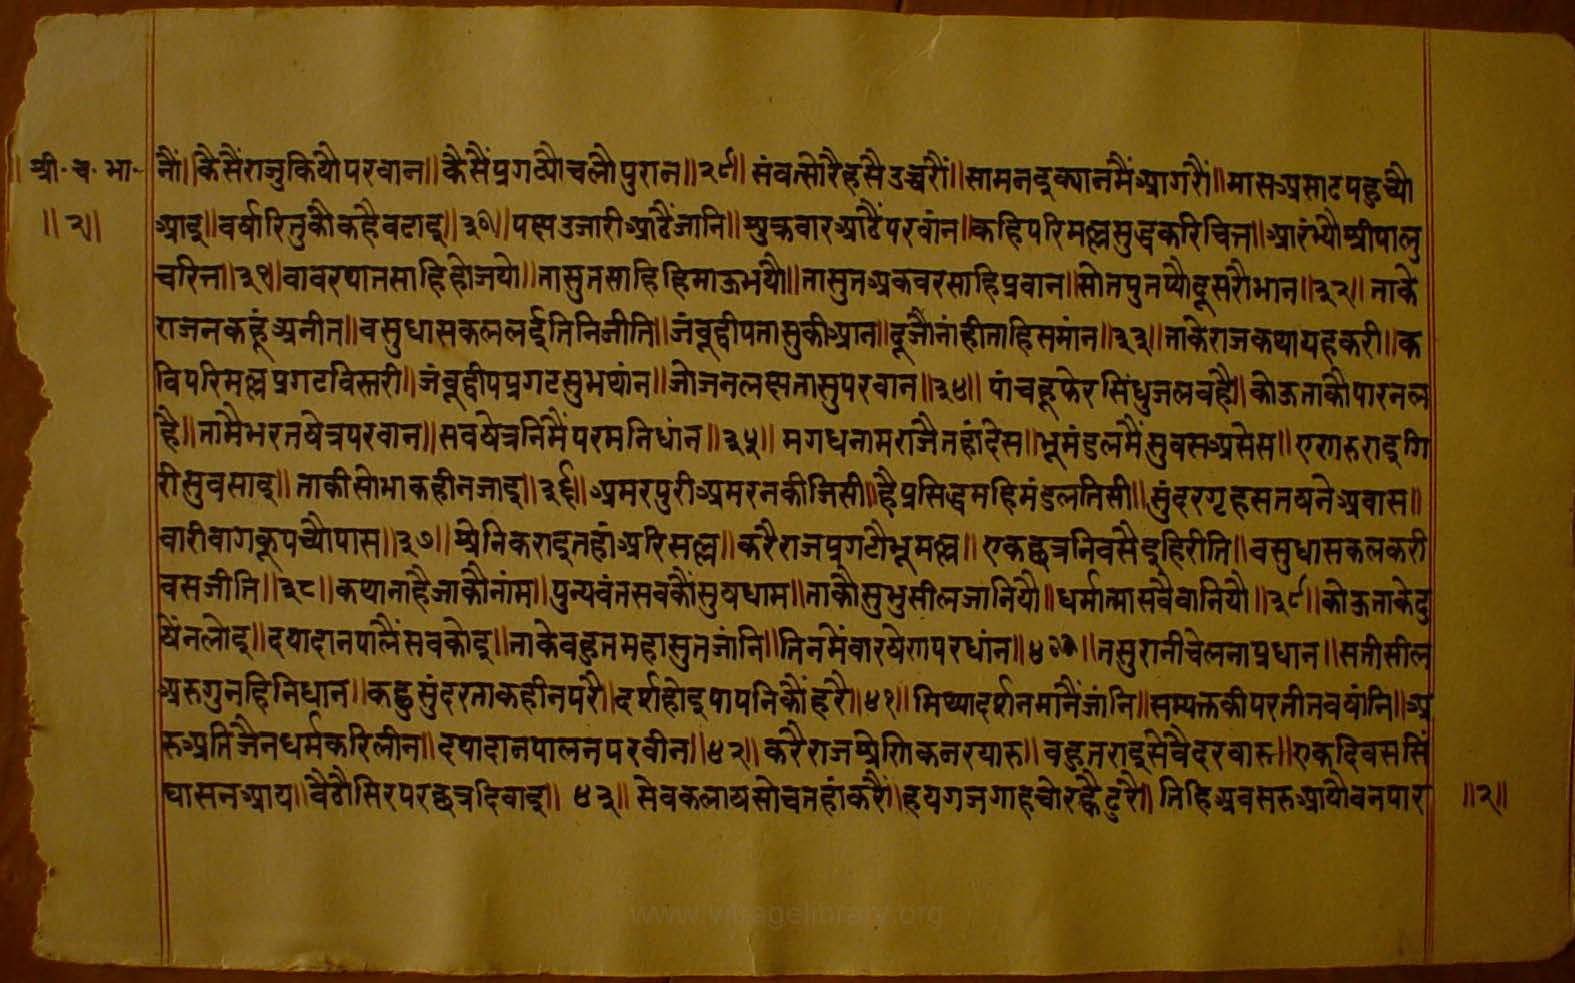 श्री॰ च॰ भा॰ नौं॥ कैसैंराजुकियौपरवान॥ कैसैंप्रगट्यौचलौपुरान॥२९॥ संवत्सोरैहसैउच्चरौं॥ सामनद्क्यानमैंआगरौं॥ मासअसाटपहुच्यौ
॥२॥ आइ॥ वर्षारितुकौकहैवटाइ॥३०॥ पक्षउजारीआठैंजानि॥ सुक्रवारआठैंपरवांन॥ कहिपरिमल्लसुद्धकरिचित्त॥ आरंभ्यौश्रीपालु
चरित्त॥३१॥ वावरपातसाहिहोजयो॥ तासुतसाहिहिमाऊभयौ॥ तासुतअकवरसाहिप्रवान॥ सोतपुतप्यौदूसरौभान॥३२॥ ताके
राजनकहूंअनीत॥ वसुधासकललईतिनिजीति॥ जंवूद्वीपतासुकीआन॥ दूजौनांहीताहिसमांन॥३३॥ ताकेराजकथायहकरी॥ क
विपरिमल्लप्रगटविस्तरी॥ जंवूद्वीपप्रगटसुभथांन॥ जोजनलक्षतासुपरवान॥३४॥ पांचहूफेरसिंधुजलवहै॥ कोऊताकौपारनल
है॥ तामैभरतषेत्रपरवान॥ सवषेत्रनिमैंपरमनिधांन॥३५॥ मगधनामराजैतहांदेस॥ भूमंडलमैंसुवसअसेस॥ एराारुराइगि
रीसुवसाइ॥ ताकीसोभाकहीनजाइ॥३६॥ अमरपुरीअमरनकीजिसी॥ हैप्रसिद्धमहिमंडलतिसी॥ सुंदरगृहसतषनेअवास॥
वारीवागकूपच्यौपास॥३७॥ श्रेनिकराइतहांअरिसल्ल॥ करैराजप्रगटौभूमल्ल॥ एकछत्रनिवसैइहिरीति॥ वसुधासकलकरी
वसजीति॥३८॥ कथाताहैजाकौनांम॥ पुन्यवंतसवकौंसुषधाम॥ ताकौसुभुसीलजांनियौ॥ धर्मात्मासवैवानियौ॥३९॥ कोऊताकेदु
षेंनलोइ॥ दयादानपालैंसवकोइ॥ ताकेवहुतमहासुतजांनि॥ तिनमेंवारषेराापरधांन॥४०॥ तसुरानीचेलनाप्रधान॥ सतीसील
अरुगुनहिनिधान॥ कछुसुंदरताकहीनपरै॥ दर्शहोइपापनिकौंहरै॥४१॥ मिथ्यादर्शनमांनैंजांनि॥ सम्यक्तकीपरतीतवषांनि॥ अ
रुअतिजैनधर्मकरिलीन॥ दयादानपालनपरवीन॥४२॥ करैराजश्रेणिकनरयारु॥ वहुतराइसेवैदरवारु॥ एकदिवससिं
घासनआय॥ वैठौसिरपरछत्रदिवाइ॥४३॥ सेवकलायसोचतहांकरैं॥ हयगजगाहचोरह्वैदुरै॥ तिहिअवसरुआयौवनपार ॥२॥
www.vitragelibrary.org